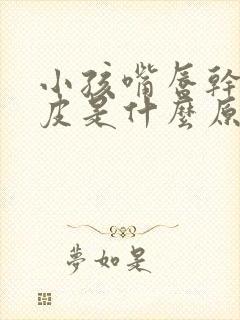 小孩嘴唇幹
皮是什麼原
夢如是